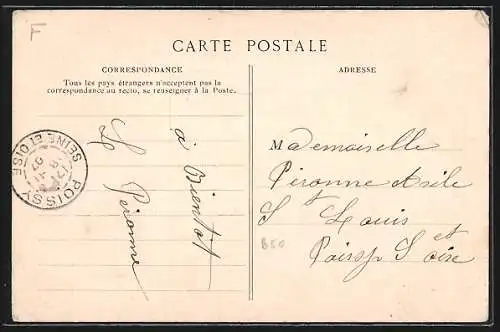 F
CARTE POSTALE
CORRESPONDANCE
Tous les pays étrangers n'acceptent pas la
correspondance au recto, se renseigner à la Poste.
à Bientôt
Peronne
POISSY
SEINE ET OISE
ADRESSE
Mademoiselle
Peronne Asile
S Louis
Poissy S et Oise
B50